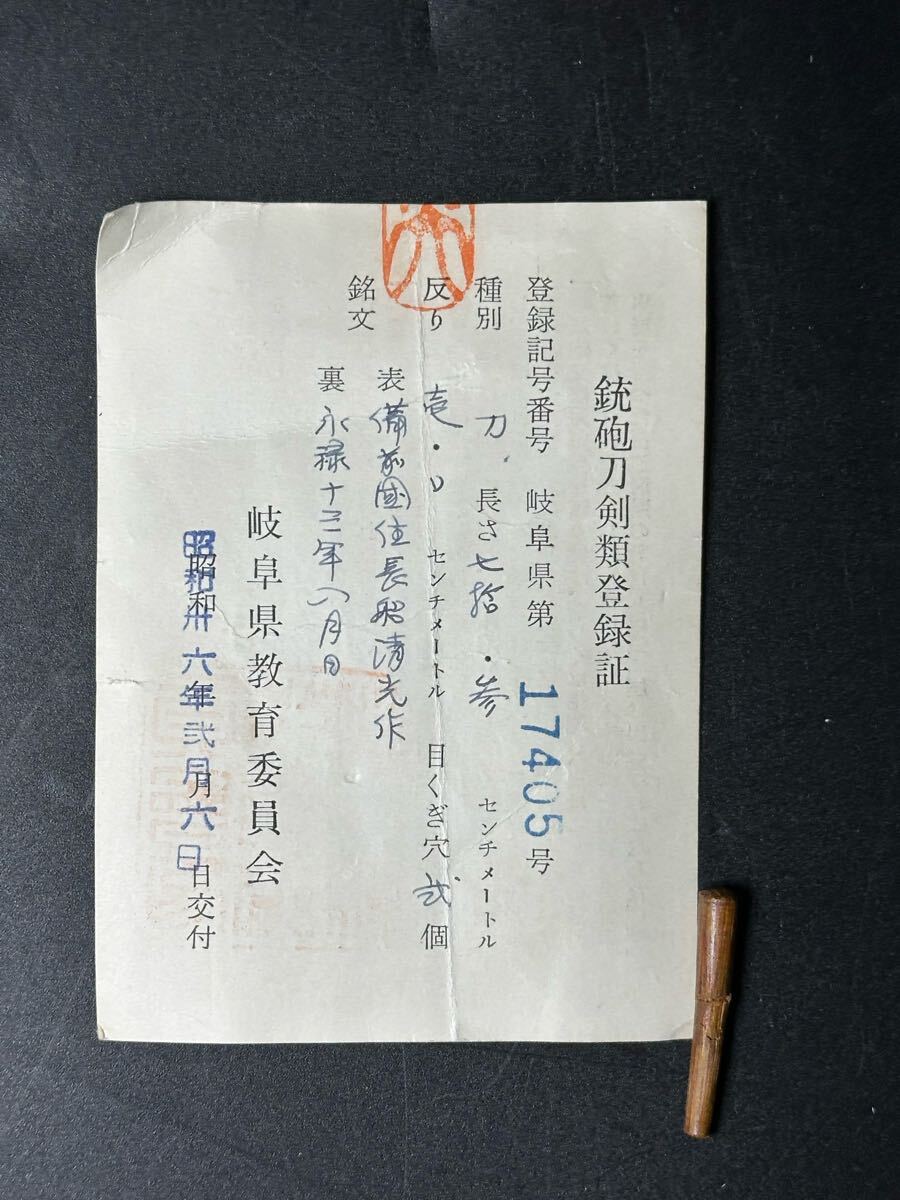 銃砲刀剣類登録証
登録記号番号 岐阜県第 17405 号
種別 刀 長さ 七拾・参 センチメートル
反り 壱・〇 センチメートル 目くぎ穴 弐 個
銘文 表 備前國住長船清光作
裏 永禄十三年八月日
岐阜県教育委員会
昭和卅六年弐月六日 昭和 月 日交付